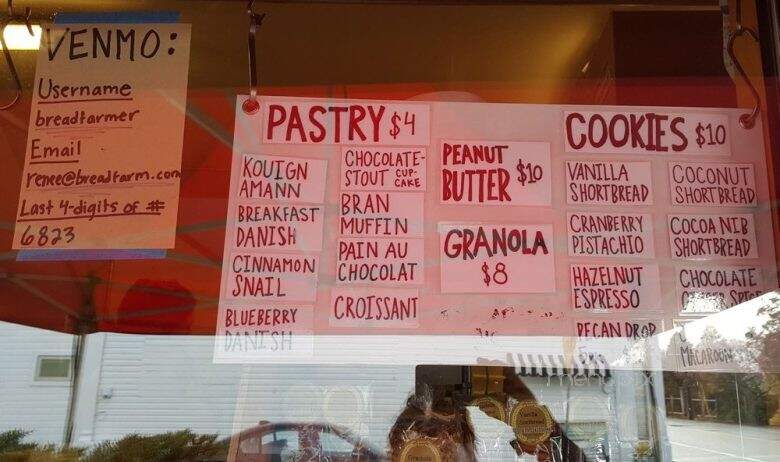 VENMO:
Username
breadfarmer
Email
renee@breadfarm.com
Last 4-digits of #
6823
PASTRY $4
KOUIGN
AMANN
BREAKFAST
DANISH
CINNAMON
SNAIL
BLUEBERRY
DANISH
CHOCOLATE-
STOUT CUP-
CAKE
BRAN
MUFFIN
PAIN AU
CHOCOLAT
CROISSANT
PEANUT
BUTTER $10
GRANOLA
$8
COOKIES $10
VANILLA
SHORTBREAD
CRANBERRY
PISTACHIO
HAZELNUT
ESPRESSO
PECAN DROP
COCONUT
SHORTBREAD
COCOA NIB
SHORTBREAD
CHOCOLATE
SPICE
MACAROON
Vanilla
Shortbread